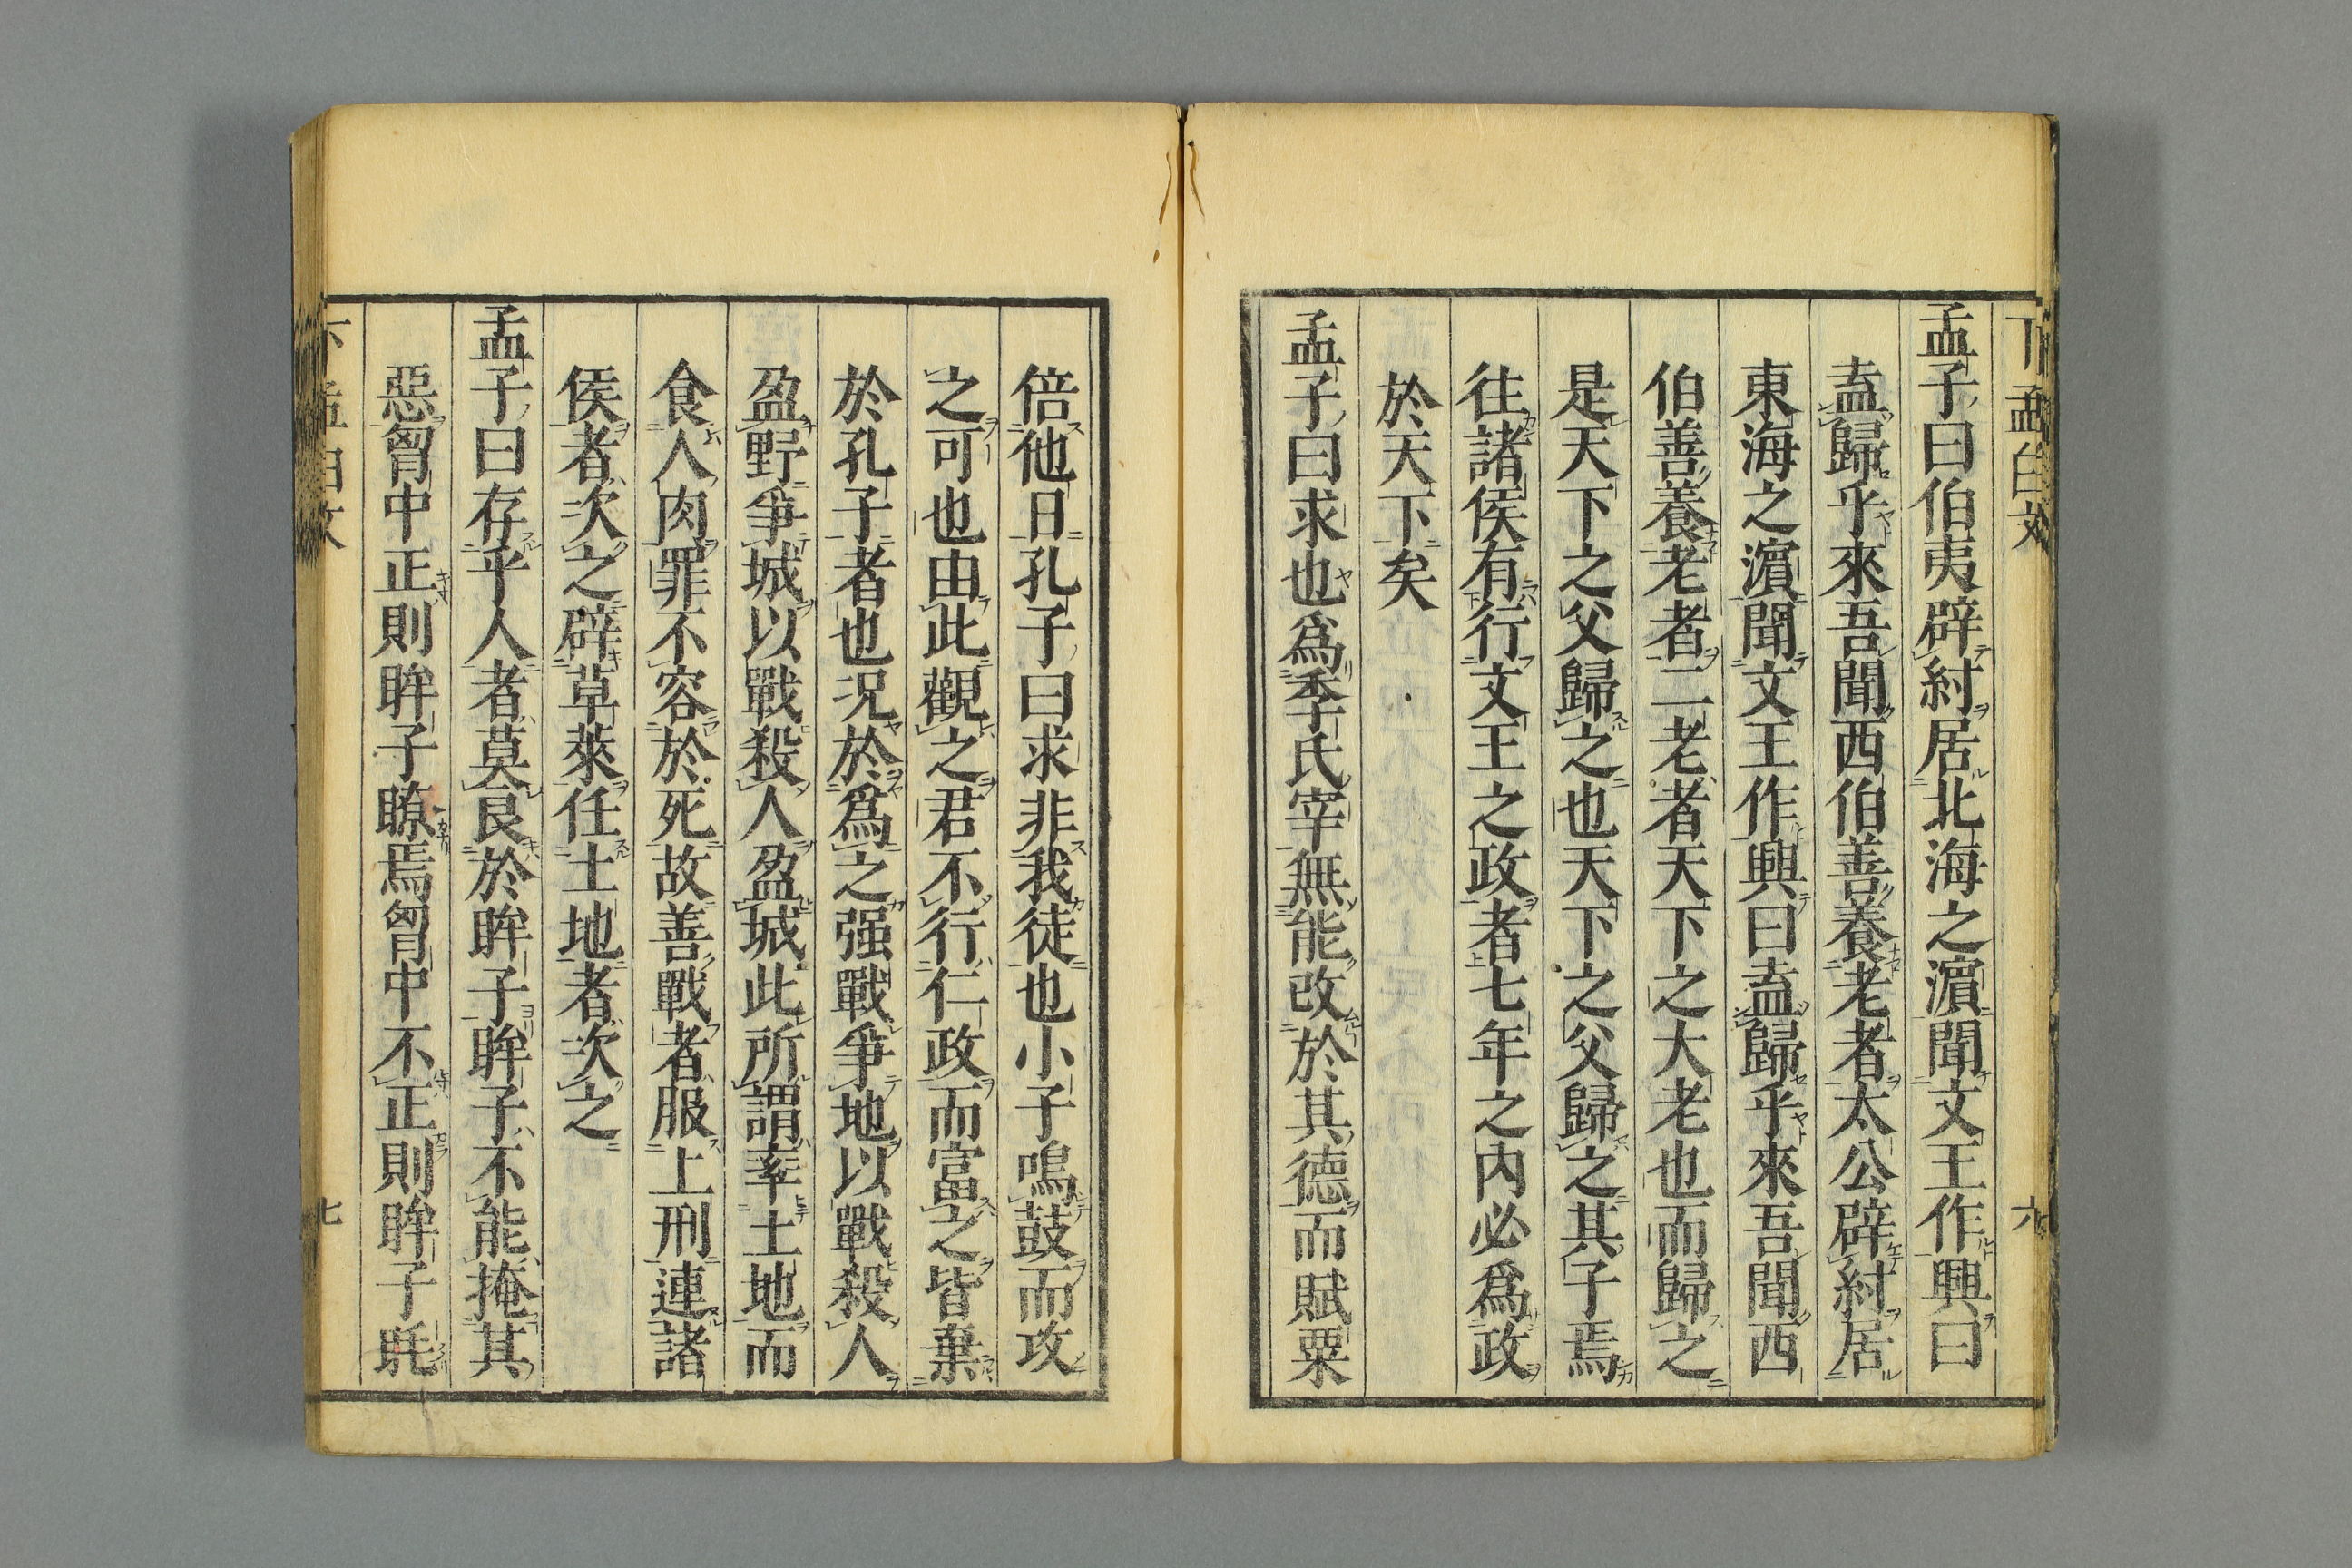 下孟白文 六
孟子曰伯夷辟紂居北海之濵聞文王作興曰
盍歸乎來吾聞西伯善養老者太公辟紂居
東海之濵聞文王作興曰盍歸乎來吾聞西
伯善養老者二老者天下之大老也而歸之
是天下之父歸之也天下之父歸之其子焉
往諸侯有行文王之政者七年之內必爲政
於天下矣
孟子曰求也爲季氏宰無能改於其德而賦粟
倍他日孔子曰求非我徒也小子鳴鼓而攻
之可也由此觀之君不行仁政而富之皆棄
於孔子者也况於爲之强戰爭地以戰殺人
盈野爭城以戰殺人盈城此所謂率土地而
食人肉罪不容於死故善戰者服上刑連諸
侯者次之辟草萊任土地者次之
孟子曰存乎人者莫良於眸子眸子不能掩其
惡胷中正則眸子瞭焉胷中不正則眸子眊
下孟白文 七